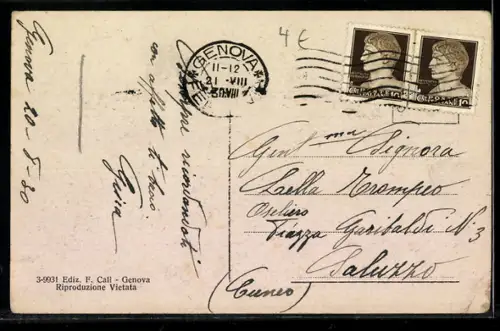 4 €
GENOVA
11-12
21 VIII
XVIII
POSTE ITALIANE 10
POSTE ITALIANE 10
Genova 20-8-30
Sempre ricordandoti
con affetto ti bacio
Gent ma Signora
Lella Trompeo
Piazza Garibaldi N. 3
Saluzzo
(Cuneo)
3-9931 Ediz. F. Cali - Genova
Riproduzione Vietata